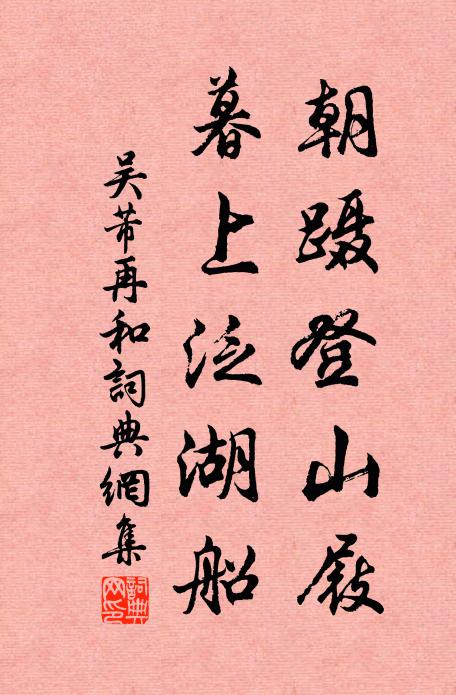 朝蹑登山屐
暮上泛湖船
吴芾再和詞典網集
詞典网印